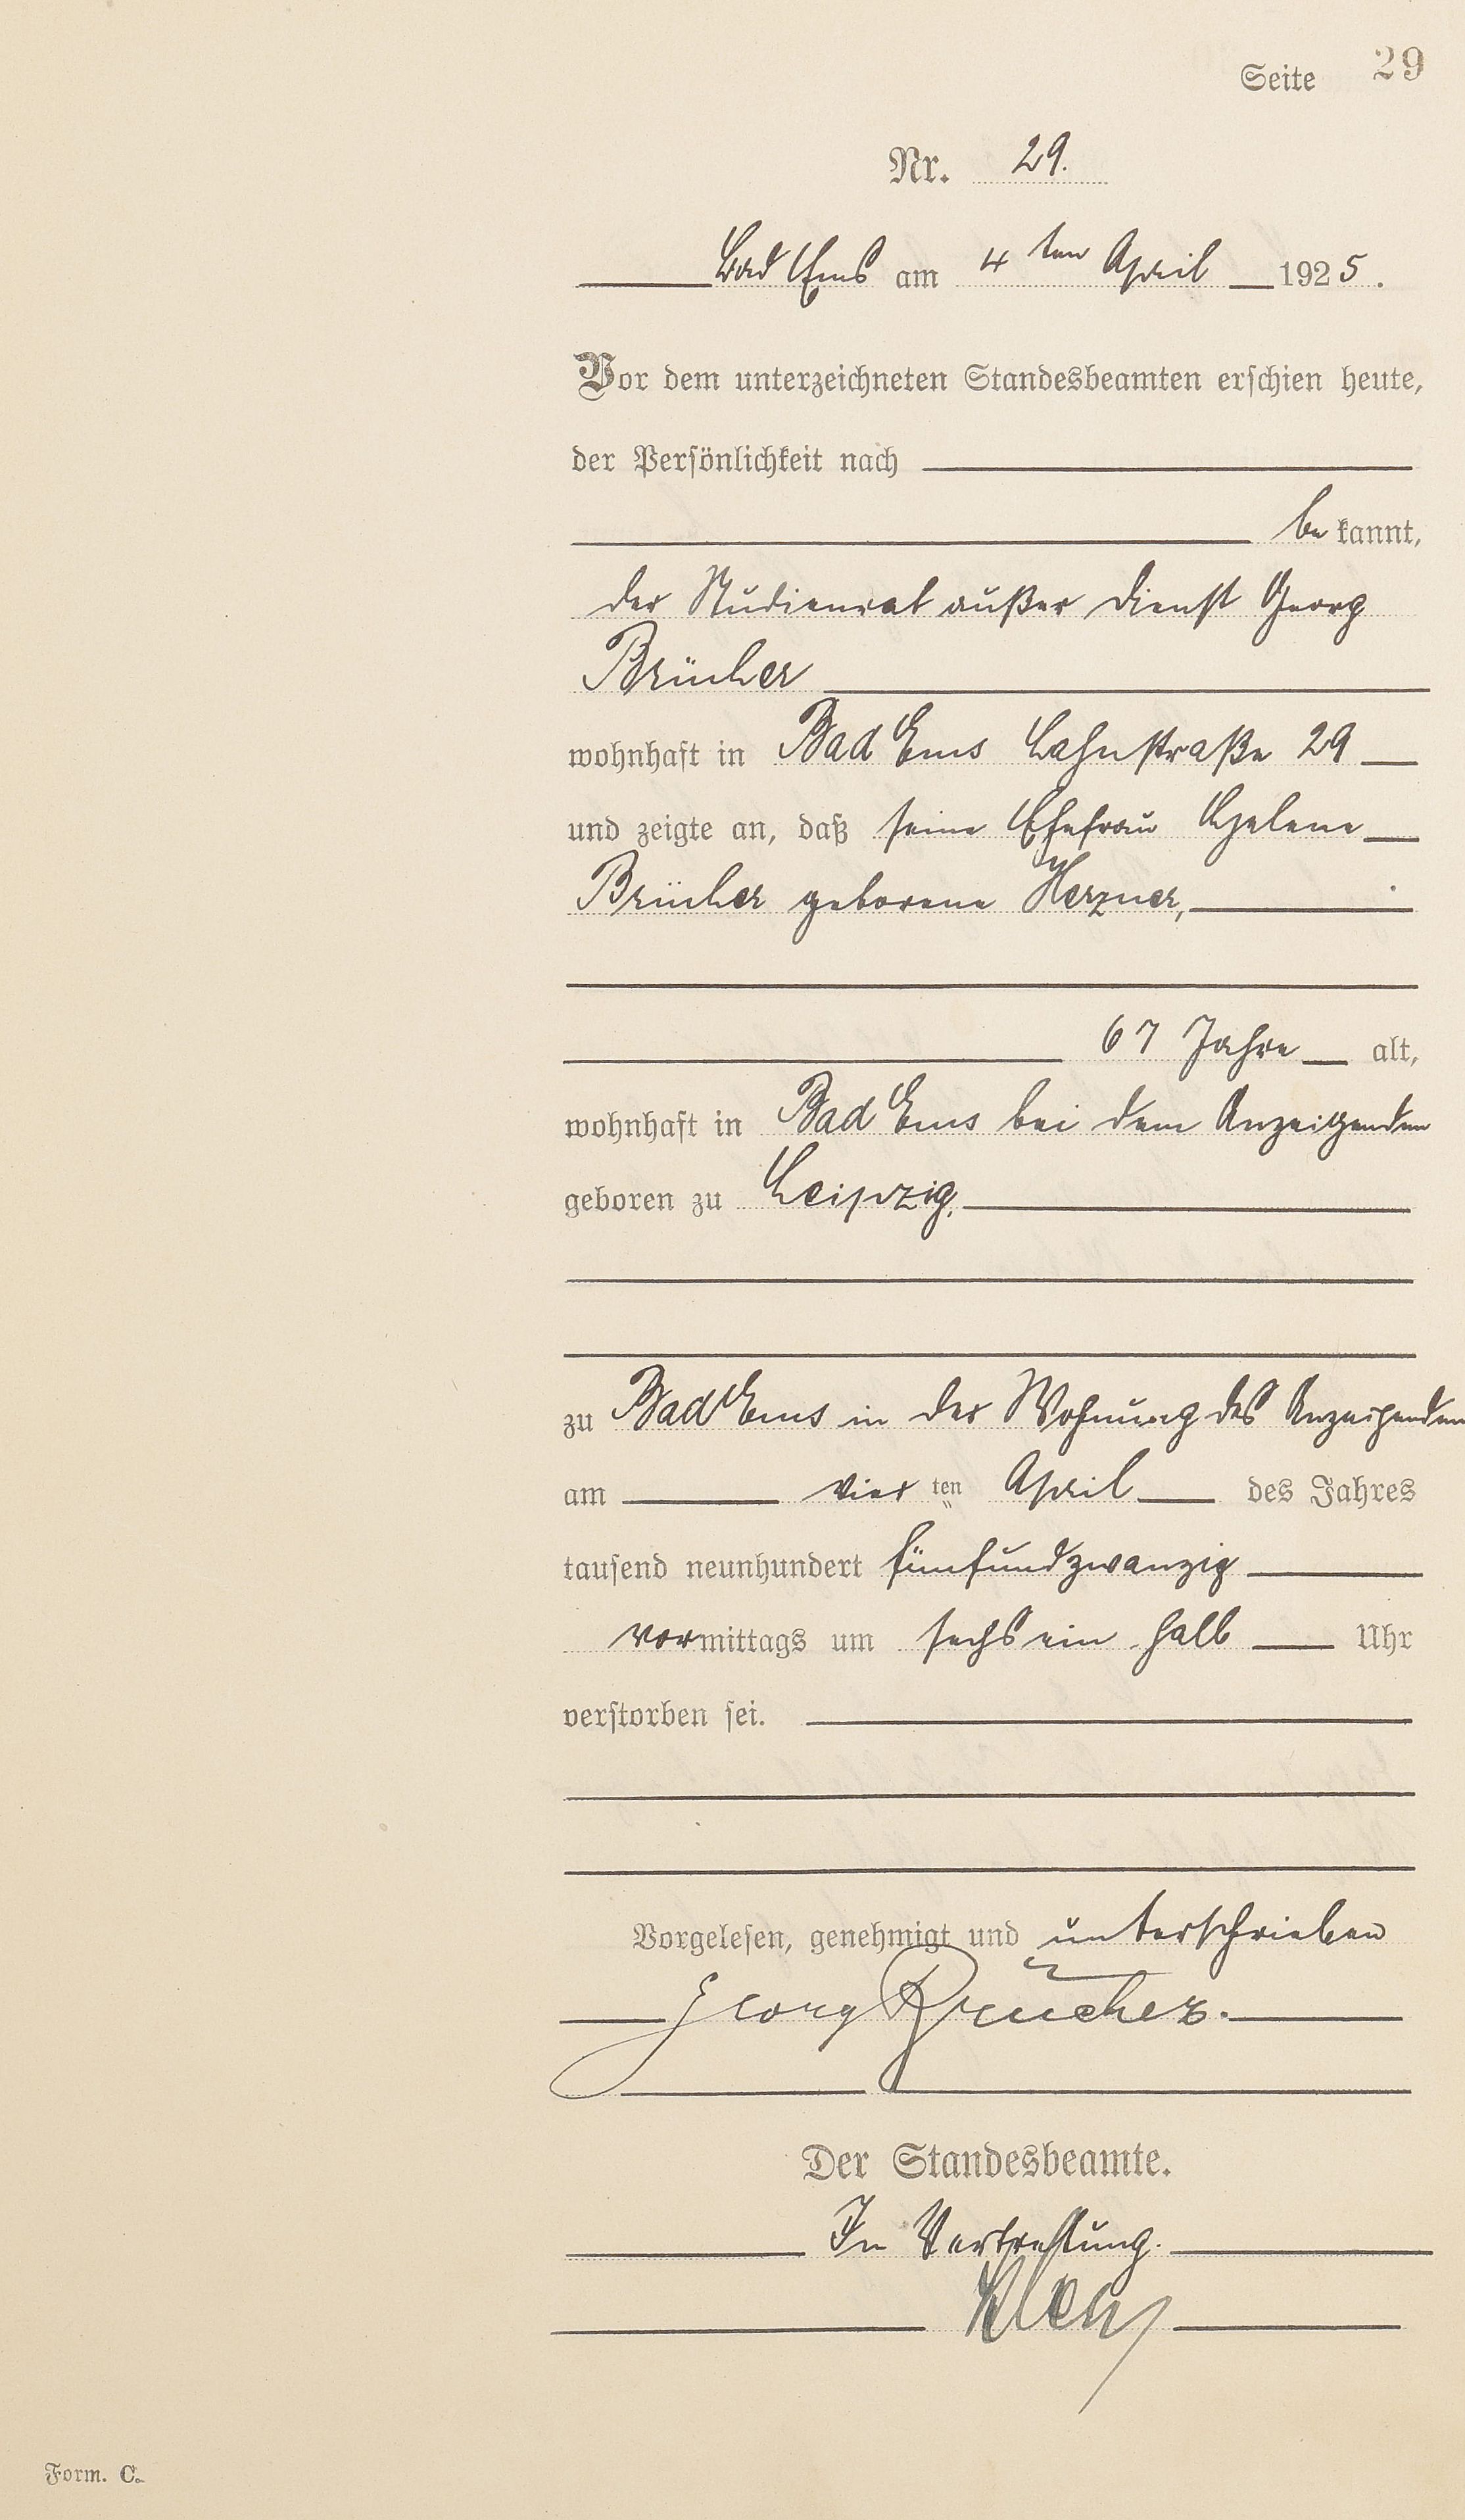 Seite 29
Nr. 29.
Bad Ems am 4ten April 1925.
Vor dem unterzeichneten Standesbeamten erschien heute,
der Persönlichkeit nach
bekannt,
der Studienrat außer Dienst Georg
Brücher
wohnhaft in Bad Ems Lahnstraße 29
und zeigte an, daß seine Ehefrau Helene
Brücher geborene Herzner,
67 Jahre alt,
wohnhaft in Bad Ems bei dem Anzeigenden
geboren zu Leipzig,
zu Bad Ems in der Wohnung des Anzeigenden
am vierten April des Jahres
tausend neunhundert fünfundzwanzig
vormittags um sechs ein halb Uhr
verstorben sei.
Vorgelesen, genehmigt und unterschrieben
Georg Brücher.
Der Standesbeamte.
In Vertretung.
Form. C.